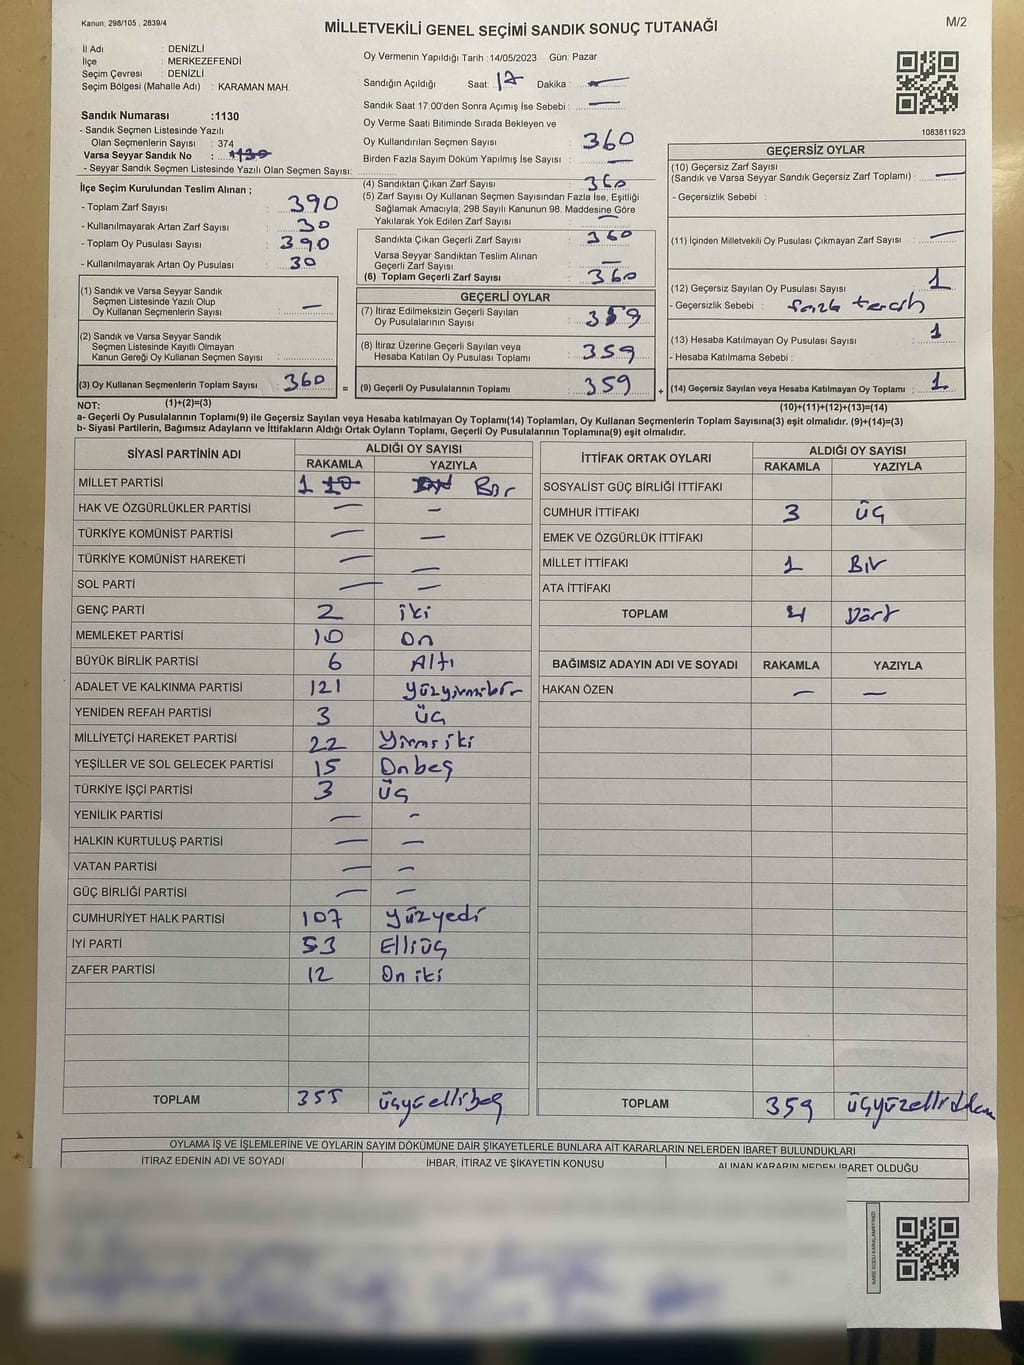 Kanun; 298/105 , 2839/4
MİLLETVEKİLİ GENEL SEÇİMİ SANDIK SONUÇ TUTANAĞI
M/2
İl Adı : DENİZLİ
İlçe : MERKEZEFENDİ
Seçim Çevresi : DENİZLİ
Seçim Bölgesi (Mahalle Adı) : KARAMAN MAH.
Sandık Numarası :1130
- Sandık Seçmen Listesinde Yazılı
Olan Seçmenlerin Sayısı : 374
Varsa Seyyar Sandık No : 1130
- Seyyar Sandık Seçmen Listesinde Yazılı Olan Seçmen Sayısı:
Oy Vermenin Yapıldığı Tarih :14/05/2023 Gün: Pazar
Sandığın Açıldığı Saat: 17 Dakika : —
Sandık Saat 17:00'den Sonra Açımış İse Sebebi : —
Oy Verme Saati Bitiminde Sırada Bekleyen ve
Oy Kullandırılan Seçmen Sayısı : 360
Birden Fazla Sayım Döküm Yapılmış İse Sayısı : —
1083811923
İlçe Seçim Kurulundan Teslim Alınan ;
- Toplam Zarf Sayısı : 390
- Kullanılmayarak Artan Zarf Sayısı : 30
- Toplam Oy Pusulası Sayısı : 390
- Kullanılmayarak Artan Oy Pusulası : 30
(1) Sandık ve Varsa Seyyar Sandık
Seçmen Listesinde Yazılı Olup
Oy Kullanan Seçmenlerin Sayısı : —
(2) Sandık ve Varsa Seyyar Sandık
Seçmen Listesinde Kayıtlı Olmayan
Kanun Gereği Oy Kullanan Seçmen Sayısı :
(3) Oy Kullanan Seçmenlerin Toplam Sayısı : 360
(1)+(2)=(3)
(4) Sandıktan Çıkan Zarf Sayısı : 360
(5) Zarf Sayısı Oy Kullanan Seçmen Sayısından Fazla İse, Eşitliği
Sağlamak Amacıyla; 298 Sayılı Kanunun 98. Maddesine Göre
Yakılarak Yok Edilen Zarf Sayısı : —
Sandıkta Çıkan Geçerli Zarf Sayısı : 360
Varsa Seyyar Sandıktan Teslim Alınan
Geçerli Zarf Sayısı : —
(6) Toplam Geçerli Zarf Sayısı : 360
GEÇERLİ OYLAR
(7) İtiraz Edilmeksizin Geçerli Sayılan
Oy Pusulalarının Sayısı : 359
(8) İtiraz Üzerine Geçerli Sayılan veya
Hesaba Katılan Oy Pusulası Toplamı : 359
= (9) Geçerli Oy Pusulalarının Toplamı : 359
GEÇERSİZ OYLAR
(10) Geçersiz Zarf Sayısı
(Sandık ve Varsa Seyyar Sandık Geçersiz Zarf Toplamı) : —
- Geçersizlik Sebebi :
(11) İçinden Milletvekili Oy Pusulası Çıkmayan Zarf Sayısı : —
(12) Geçersiz Sayılan Oy Pusulası Sayısı : 1
- Geçersizlik Sebebi : fazla tercih
(13) Hesaba Katılmayan Oy Pusulası Sayısı : 1
- Hesaba Katılmama Sebebi :
+ (14) Geçersiz Sayılan veya Hesaba Katılmayan Oy Toplamı : 1
(10)+(11)+(12)+(13)=(14)
NOT:
a- Geçerli Oy Pusulalarının Toplamı(9) ile Geçersiz Sayılan veya Hesaba katılmayan Oy Toplamı(14) Toplamları, Oy Kullanan Seçmenlerin Toplam Sayısına(3) eşit olmalıdır. (9)+(14)=(3)
b- Siyasi Partilerin, Bağımsız Adayların ve İttifakların Aldığı Ortak Oyların Toplamı, Geçerli Oy Pusulalarının Toplamına(9) eşit olmalıdır.
SİYASİ PARTİNİN ADI ALDIĞI OY SAYISI
RAKAMLA YAZIYLA
MİLLET PARTİSİ 1 10 On Bir
HAK VE ÖZGÜRLÜKLER PARTİSİ — —
TÜRKİYE KOMÜNİST PARTİSİ — —
TÜRKİYE KOMÜNİST HAREKETİ — —
SOL PARTİ — —
GENÇ PARTİ 2 iki
MEMLEKET PARTİSİ 10 On
BÜYÜK BİRLİK PARTİSİ 6 Altı
ADALET VE KALKINMA PARTİSİ 121 yüzyirmibir
YENİDEN REFAH PARTİSİ 3 üç
MİLLİYETÇİ HAREKET PARTİSİ 22 Yirmi iki
YEŞİLLER VE SOL GELECEK PARTİSİ 15 Onbeş
TÜRKİYE İŞÇİ PARTİSİ 3 üç
YENİLİK PARTİSİ — -
HALKIN KURTULUŞ PARTİSİ — —
VATAN PARTİSİ — —
GÜÇ BİRLİĞİ PARTİSİ — —
CUMHURİYET HALK PARTİSİ 107 yüzyedi
İYİ PARTİ 53 Elliüç
ZAFER PARTİSİ 12 On iki
TOPLAM 355 üçyüzellibeş
İTTİFAK ORTAK OYLARI ALDIĞI OY SAYISI
RAKAMLA YAZIYLA
SOSYALİST GÜÇ BİRLİĞİ İTTİFAKI
CUMHUR İTTİFAKI 3 üç
EMEK VE ÖZGÜRLÜK İTTİFAKI
MİLLET İTTİFAKI 1 Bir
ATA İTTİFAKI
TOPLAM 4 Dört
BAĞIMSIZ ADAYIN ADI VE SOYADI RAKAMLA YAZIYLA
HAKAN ÖZEN — —
TOPLAM 359 üçyüzellidokuz
OYLAMA İŞ VE İŞLEMLERİNE VE OYLARIN SAYIM DÖKÜMÜNE DAİR ŞİKAYETLERLE BUNLARA AİT KARARLARIN NELERDEN İBARET BULUNDUKLARI
İTİRAZ EDENİN ADI VE SOYADI İHBAR, İTİRAZ VE ŞİKAYETİN KONUSU ALINAN KARARIN NEDEN İBARET OLDUĞU
KARE KODU KARALAMAYINIZ!